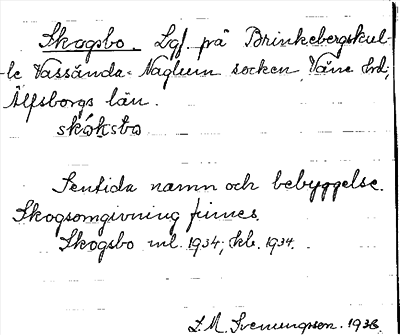 Skogsbo. Lgf. på Brinkebergskul-
le Vassända-Naglum socken, Väne hd,
Älfsborgs län.
skóksbo
Sentida namn och bebyggelse.
Skogsomgivning finnes.
Skogsbo ml. 1934; kb. 1934.
L. M. Svenungsson. 1938.